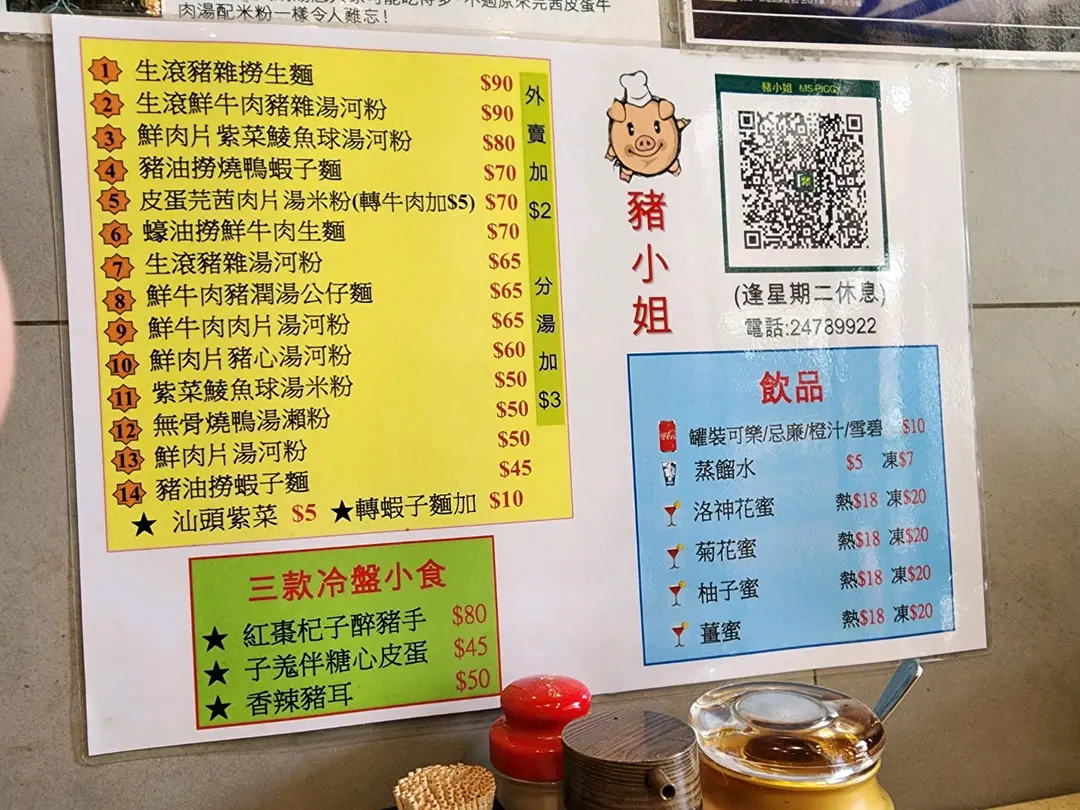 肉湯配米粉一樣令人難忘!
1 生滾豬雜撈生麵 $90
2 生滾鮮牛肉豬雜湯河粉 $90
3 鮮肉片紫菜鯪魚球湯河粉 $80
4 豬油撈燒鴨蝦子麵 $70
5 皮蛋芫茜肉片湯米粉(轉牛肉加$5) $70
6 蠔油撈鮮牛肉生麵 $70
7 生滾豬雜湯河粉 $65
8 鮮牛肉豬潤湯公仔麵 $65
9 鮮牛肉肉片湯河粉 $65
10 鮮肉片豬心湯河粉 $60
11 紫菜鯪魚球湯米粉 $50
12 無骨燒鴨湯瀨粉 $50
13 鮮肉片湯河粉 $50
14 豬油撈蝦子麵 $45
★ 汕頭紫菜 $5 ★轉蝦子麵加 $10
外賣加$2
分湯加$3
三款冷盤小食
★ 紅棗杞子醉豬手 $80
★ 子羗伴糖心皮蛋 $45
★ 香辣豬耳 $50
豬小姐
豬小姐 MS PIGGY
(逢星期二休息)
電話:24789922
飲品
罐裝可樂/忌廉/橙汁/雪碧 $10
蒸餾水 $5 凍$7
洛神花蜜 熱$18 凍$20
菊花蜜 熱$18 凍$20
柚子蜜 熱$18 凍$20
薑蜜 熱$18 凍$20